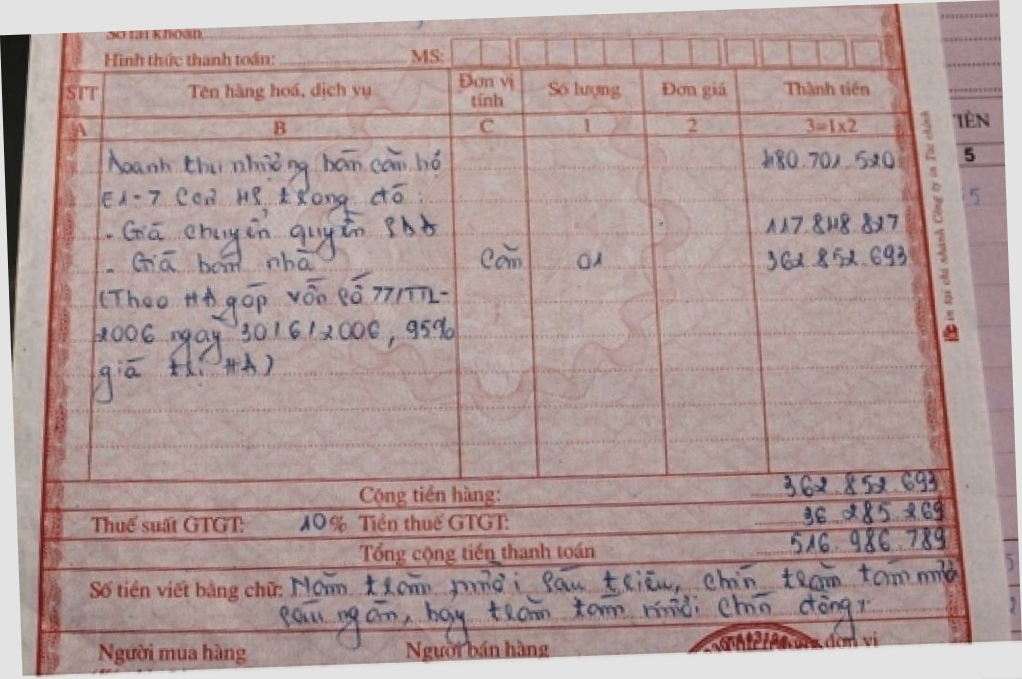 Số tài khoản
Hình thức thanh toán: MS:
STT Tên hàng hoá, dịch vụ Đơn vị tính Số lượng Đơn giá Thành tiền
A B C 1 2 3=1x2
Doanh thu nhượng bán căn hộ 480.701.520
E1-7 trong đó:
- Giá chuyển quyền SDĐ 117.848.827
- Giá bán nhà Căn 01 362.852.693
(Theo HĐ góp vốn số 77/TTL-
2006 ngày 30/6/2006, 95%
giá trị HĐ)
Cộng tiền hàng: 362 852 693
Thuế suất GTGT: 10% Tiền thuế GTGT: 36 285 269
Tổng cộng tiền thanh toán 516 986 789
Số tiền viết bằng chữ: Năm trăm mười sáu triệu, chín trăm tám mươi
sáu ngàn, bảy trăm tám mươi chín đồng
Người mua hàng Người bán hàng đơn vị
in tại chi nhánh Công ty in Tài chính
IỀN
5